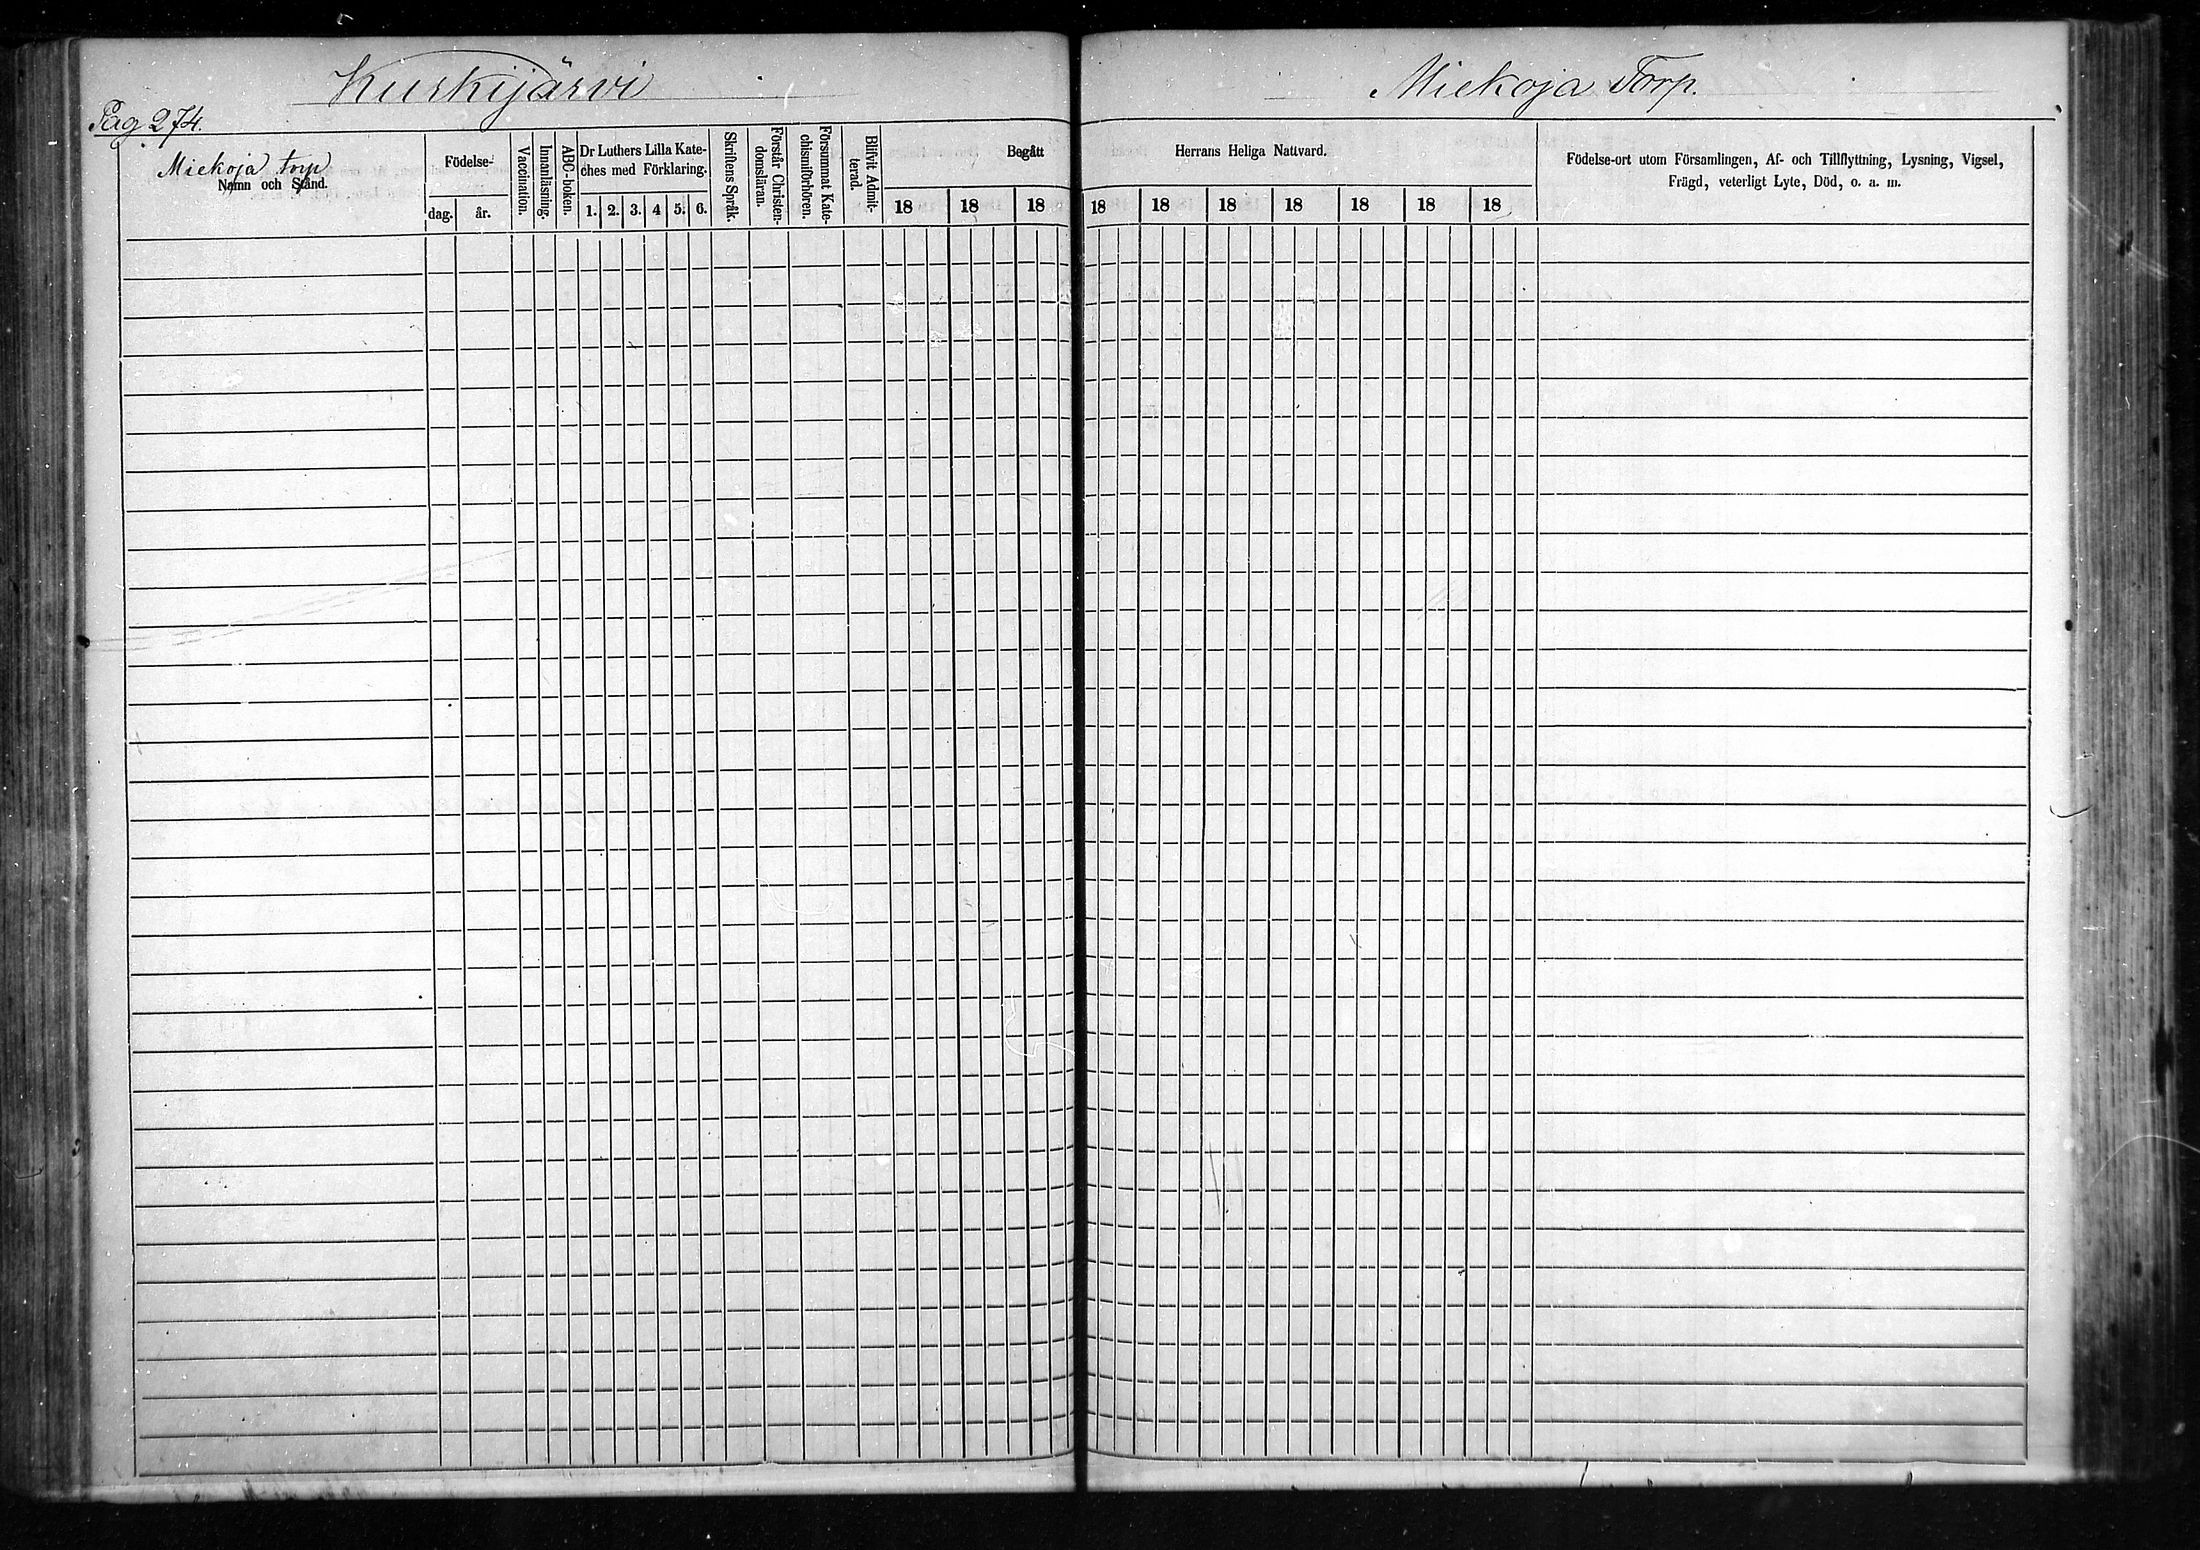 Kurkijärvi
Mickoja Torp.
Pag 274.
Mickoja torp
Namn och Stånd.
Födelse-
dag. år.
Vaccination.
Innanläsning.
ABC-boken.
Dr Luthers Lilla Kate-
ches med Förklaring.
1. 2. 3. 4 5. 6.
Skriftens Språk.
Förstår Christen-
domsläran.
Försummat Kate-
chismiförhören.
Blifvit Admit-
terad.
Begått Herrans Heliga Nattvard.
18 18 18 18 18 18 18 18 18 18
Födelse-ort utom Församlingen, Af- och Tillflyttning, Lysning, Vigsel,
Frägd, veterligt Lyte, Död, o. a. m.